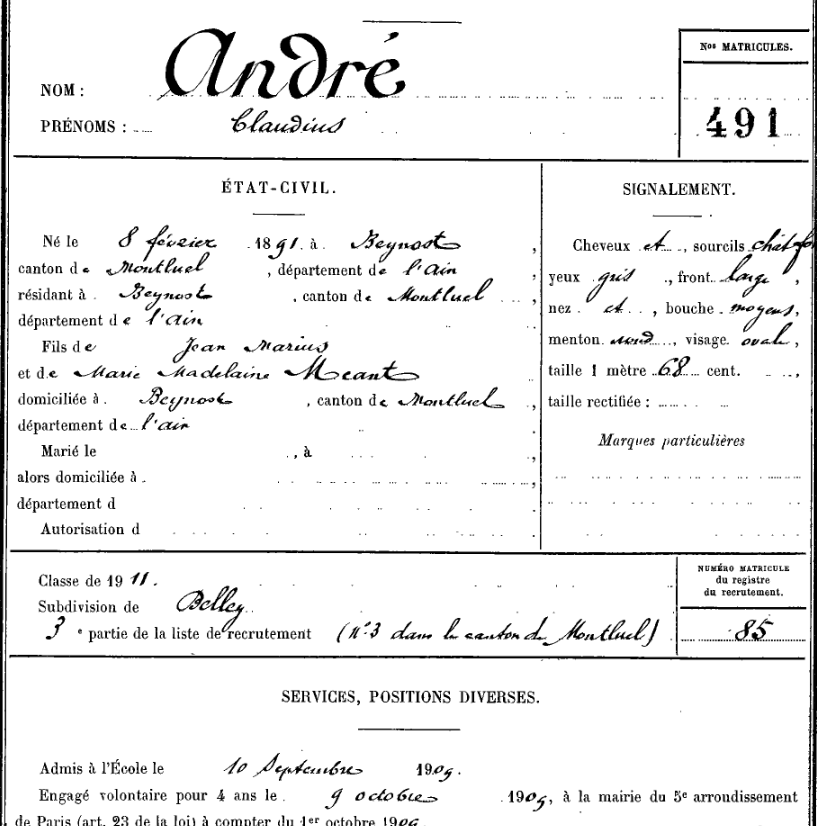 Nos MATRICULES.
NOM : André
PRÉNOMS : Claudius
491
ÉTAT-CIVIL.
Né le 8 février 1891. à Beynost,
canton de Montluel, département de l'Ain
résidant à Beynost, canton de Montluel,
département de l'Ain
Fils de Jean Marius
et de Marie Madelaine Meant
domiciliée à Beynost, canton de Montluel,
département de l'Ain
Marié le , à ,
alors domiciliée à ,
département d
Autorisation d
SIGNALEMENT.
Cheveux et, sourcils
yeux gris, front large,
nez et, bouche moyens,
menton rond, visage ovale,
taille 1 mètre 68 cent. ,
taille rectifiée :
Marques particulières
Classe de 1911.
Subdivision de Belley
3e partie de la liste de recrutement (N° 3 dans le canton de Montluel)
NUMÉRO MATRICULE
du registre
du recrutement.
85
SERVICES, POSITIONS DIVERSES.
Admis à l'École le 10 Septembre 1909.
Engagé volontaire pour 4 ans le 9 octobre 1909, à la mairie du 5e arroudissement
de Paris (art. 23 de la loi) à compter du 1er octobre 1909